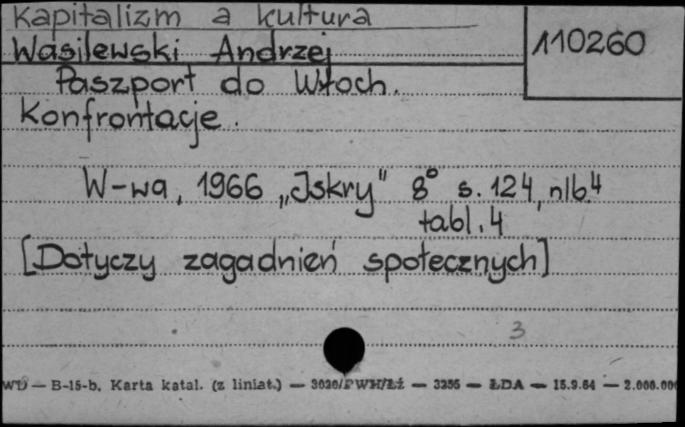 Kapitalizm a kultura
110260
Wasilewski Andrzej
Paszport do Włoch.
Konfrontacje.
W-wa, 1966 „Iskry" 8° s. 124, nlb.4
tabl. 4
[Dotyczy zagadnień społecznych]
3
WD — B-15-b. Karta katal. (z liniat.) — 3020/PWH/Łź — 3256 — ŁDA — 15.9.64 — 2.000.000